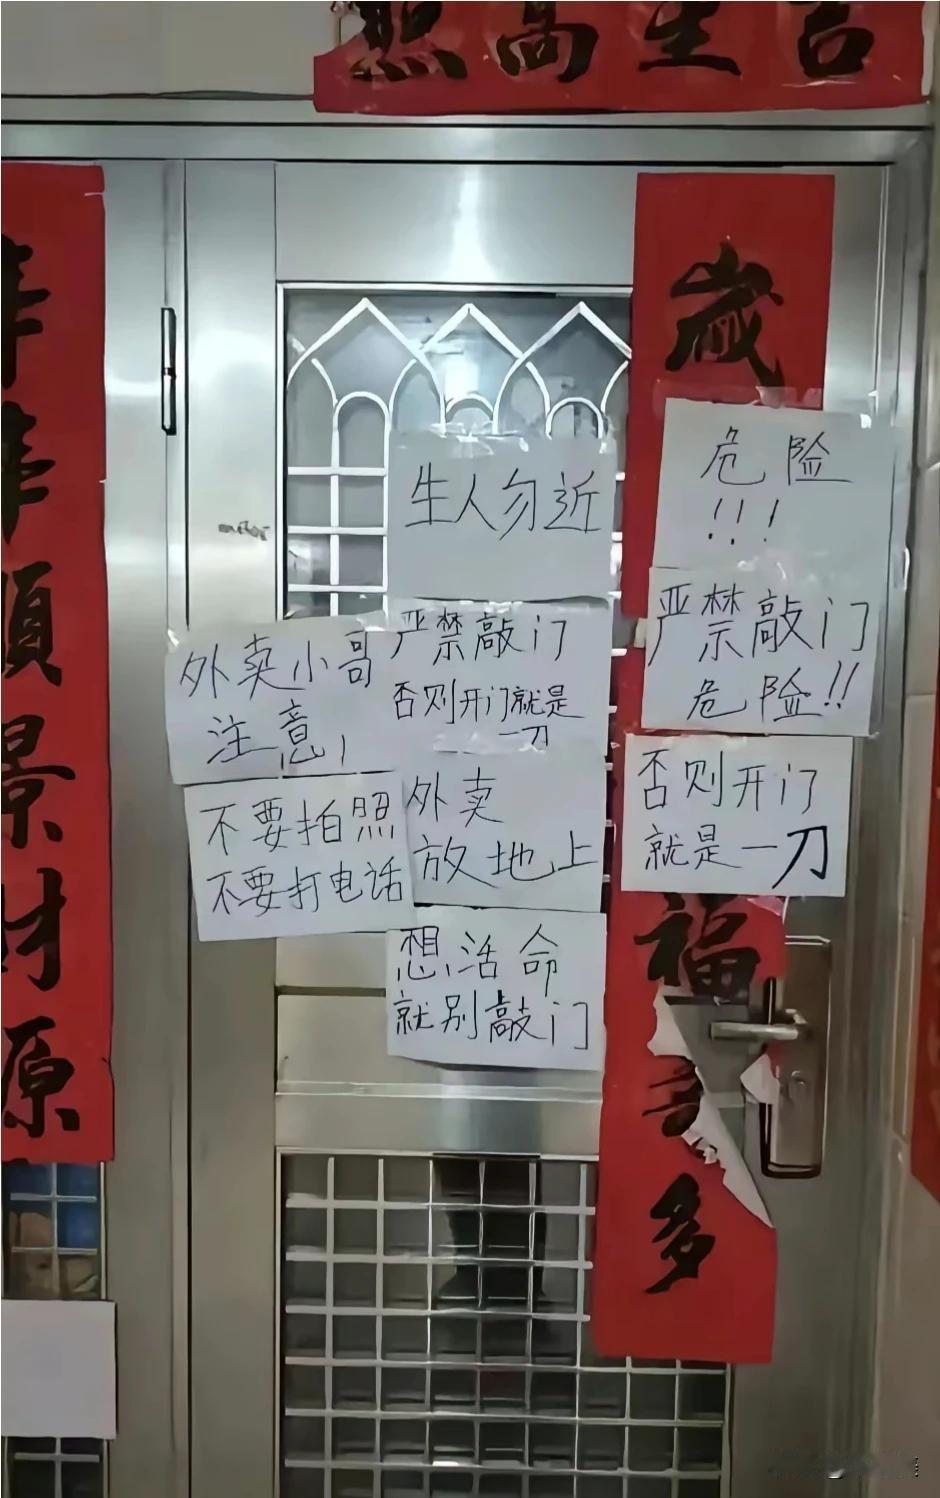 照高星吉
年年順景財源
歲
福
多
生人勿近
危险
!!!
严禁敲门
危险!!
否则开门
就是一刀
外卖小哥
注意!
严禁敲门
否则开门就是
一刀
不要拍照
不要打电话
外卖
放地上
想活命
就别敲门